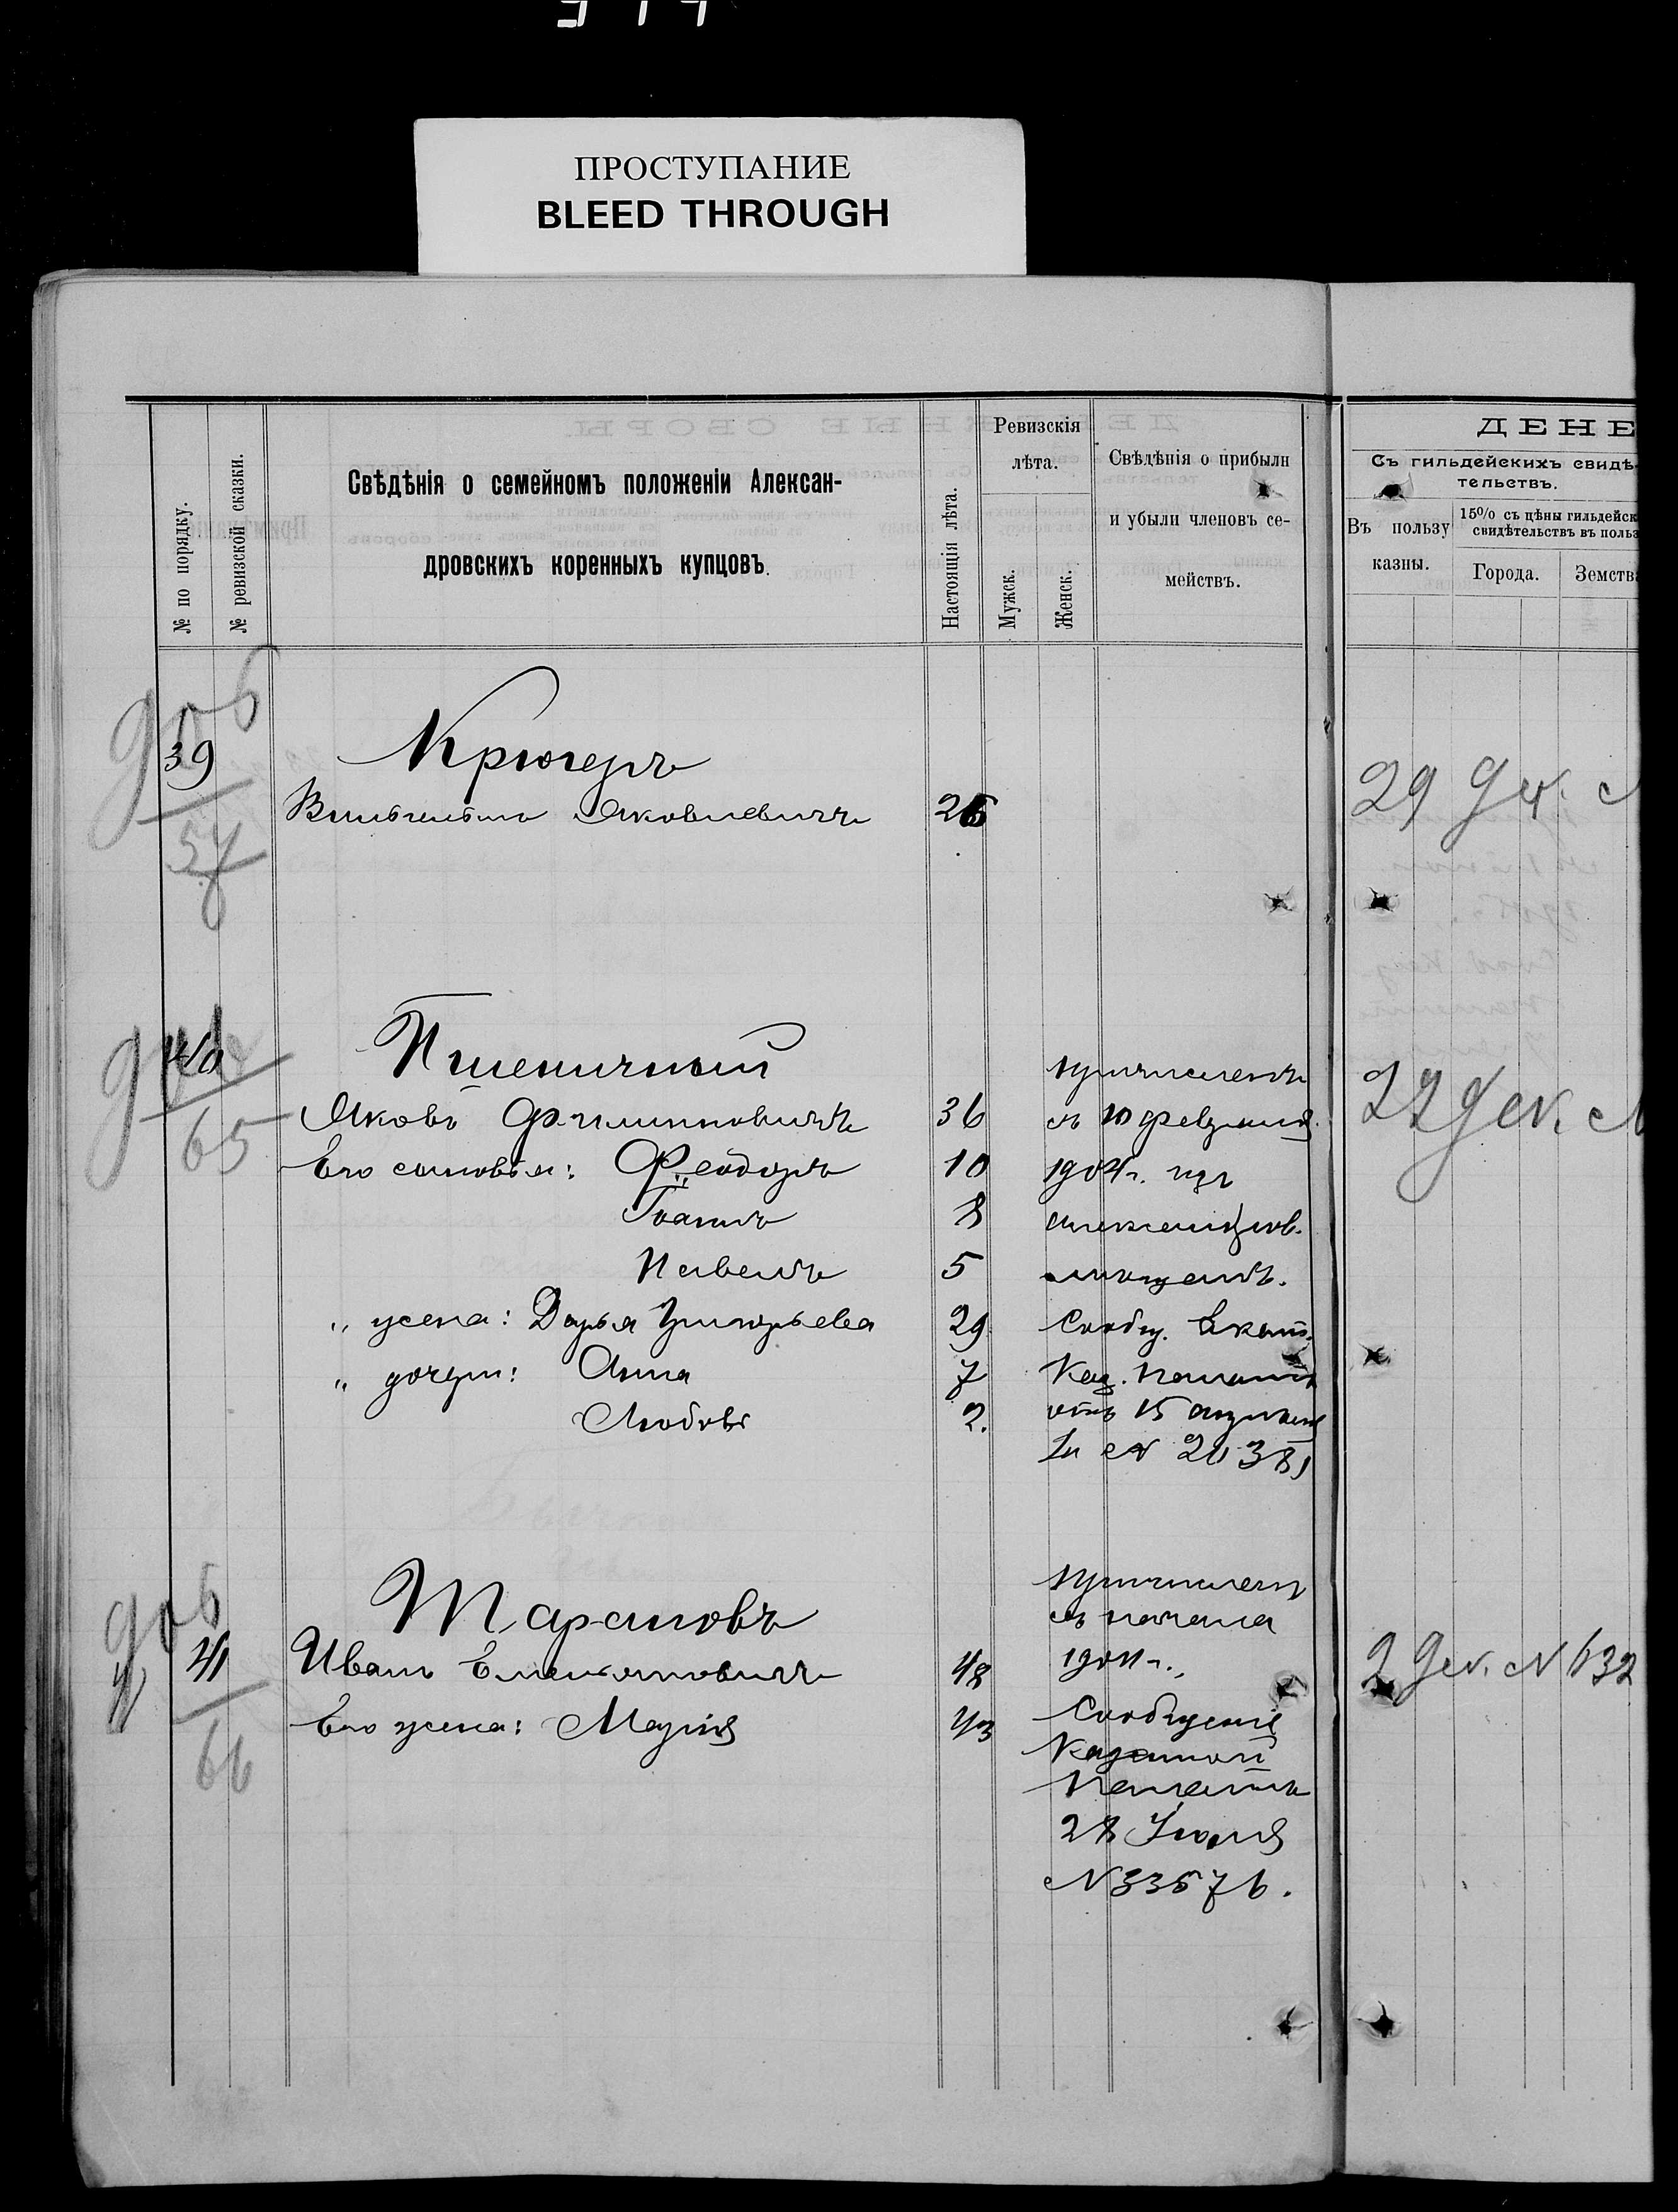 ПРОСТУПАНИЕ
BLEED THROUGH
№ по порядку.
№ ревизской сказки.
Свѣдѣнія о семейномъ положеніи Алексан-
дровскихъ коренныхъ купцовъ.
Настоящія лѣта.
Ревизскія
лѣта.
Мужск.
Женск.
Свѣдѣнія о прибыли
и убыли членовъ се-
мействъ.
ДЕНЕ
Съ гильдейскихъ свидѣ-
тельствъ.
Въ пользу
казны.
15% съ цѣны гильдейск
свидѣтельствъ въ польз
Города.
Земства
39
57
Крюгеръ
Вильгельмъ Яковлевичъ 26
29 Дек. №
40
65
Пшеничный
причисленъ
Яковъ Филипповичъ 36 съ 10 февраля
22 Дек. №
Его сыновья: Феодоръ 10 1904 г. изъ
Іоаннъ 8 александров.
Павелъ 5 мѣщанъ.
„ жена: Дарья Григорьева 29 Сообщ. Екат.
„ дочери: Анна 7 Каз. Палаты
Любовь 2. отъ 15 апрѣля
за № 20381
41
66
Тарановъ
причисленъ
съ начала
Иванъ 48 1904 г.,
2 Дек. № 632
Его жена: Марія 43 Сообщеніе
Казенной
Палаты
28 Іюля
№ 33576.